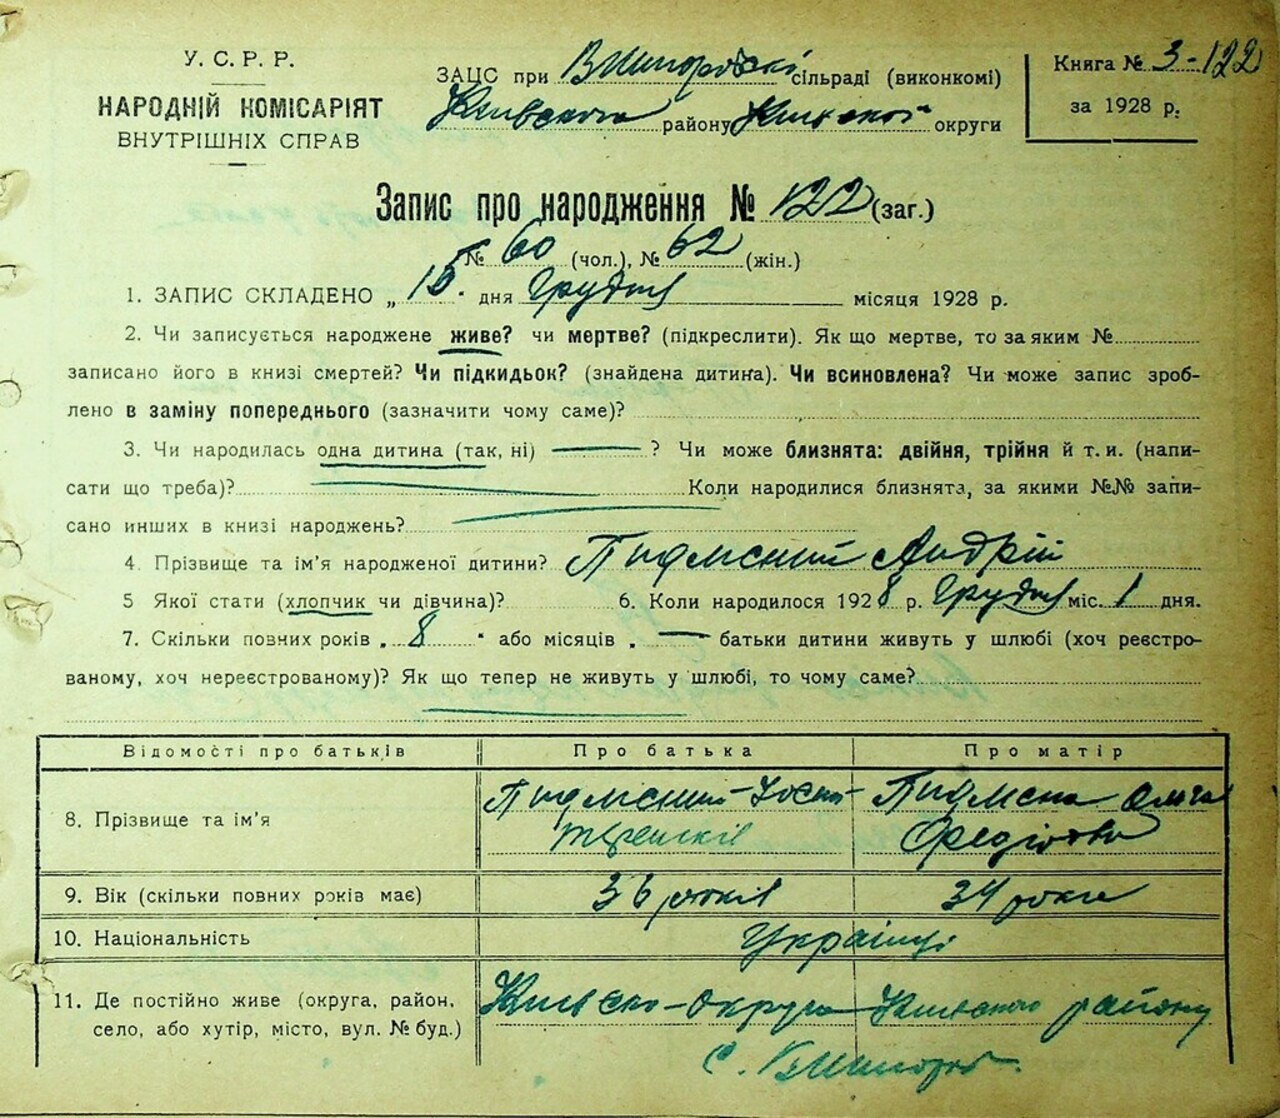 У. С. Р. Р.
НАРОДНІЙ КОМІСАРІЯТ
ВНУТРІШНІХ СПРАВ
ЗАЦС при Вишгородскі сільраді (виконкомі)
Київского району Київскої округи
Книга № 3-122
за 1928 р.
Запис про народження № 122 (заг.)
№ 60 (чол.), № 62 (жін.)
1. ЗАПИС СКЛАДЕНО „ 15. дня Грудня місяця 1928 р.
2. Чи записується народжене живе? чи мертве? (підкреслити). Як що мертве, то за яким №
записано його в книзі смертей? Чи підкидьок? (знайдена дитина). Чи всиновлена? Чи може запис зроб-
лено в заміну попереднього (зазначити чому саме)?
3. Чи народилась одна дитина (так, ні) — ? Чи може близнята: двійня, трійня й т. и. (напи-
сати що треба)? Коли народилися близнята, за якими №№ запи-
сано инших в книзі народжень?
4. Прізвище та ім'я народженої дитини? Андрій
5 Якої стати (хлопчик чи дівчина)? 6. Коли народилося 1928 р. Грудня міс. 1 дня.
7. Скільки повних років „ 8 " або місяців „ — батьки дитини живуть у шлюбі (хоч реєстро-
ваному, хоч нереєстрованому)? Як що тепер не живуть у шлюбі, то чому саме?
Відомості про батьків Про батька Про матір
8. Прізвище та ім'я Ольга
9. Вік (скільки повних років має) 36 років 34 роки
10. Національність Українці
11. Де постійно живе (округа, район, Київско-округа Київского району
село, або хутір, місто, вул. № буд.) с. Вишгород.